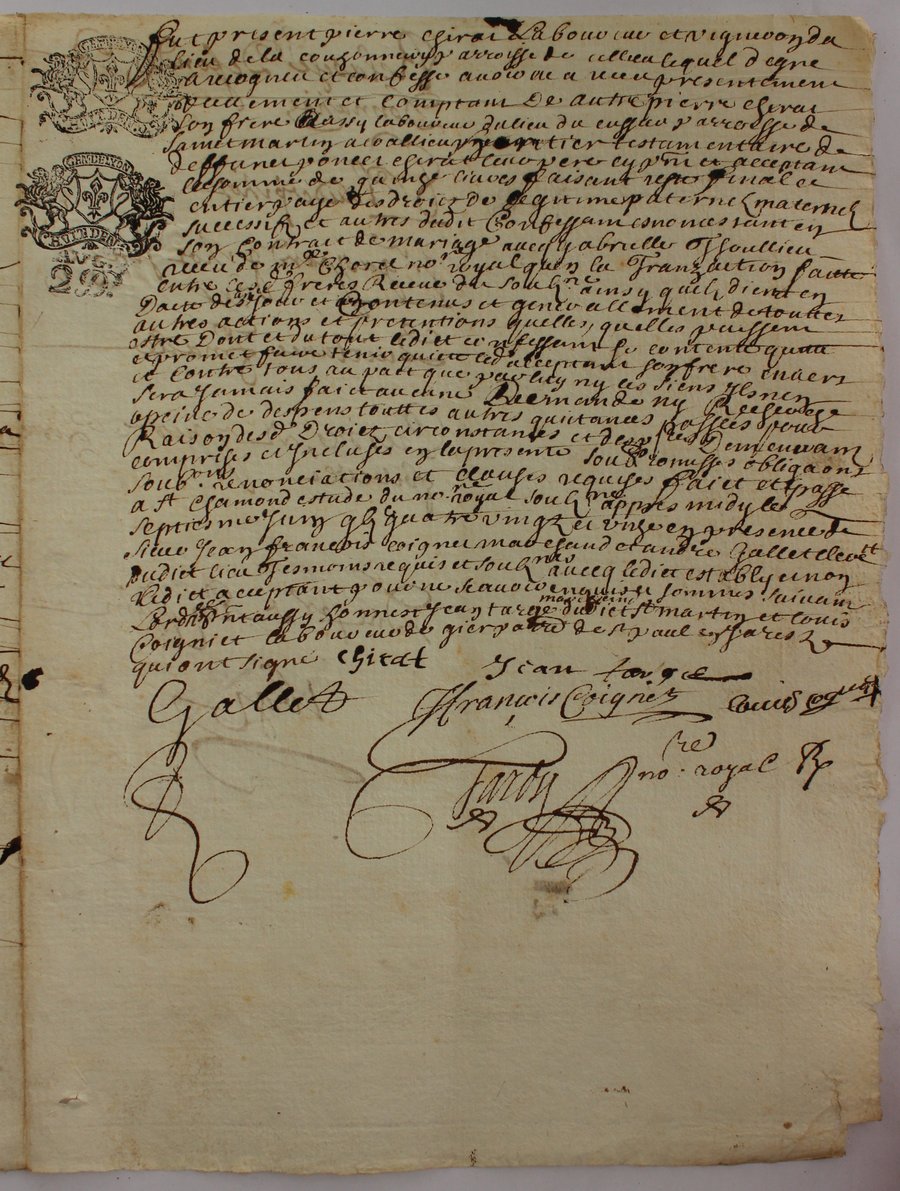 GEN.DE LYON
HUIT DEN.
GEN.DE LYON
HUIT DEN.
29
fut present pierre chirat Laboureur et vigneron du
lieu de la couzonnery parroisse de cellieu lequel de gre
a recogneu et confesse avoir a receu presentement
reellement et comptant De autre pierre chirat
son frere aussy laboureur du lieu du parroisse de
sainct martin acoallieu heritier testamentaire de
deffunct poncet chirat leur pere cy pnt et acceptant
la somme de quinze livres faisant reste final et
entier paye des droicts de legitime paternelz maternelz
successifz et autres dudit Confessant enonces tant en
son Contract de mariage avec gabrielle Thoullieu
receu de me Chorel nore royal quen la Tranzaction faitte
entre lesd freres Receue du soubne ainsy quilz dient en
Dacte de jour et an contenus et generallement de touttes
autres actions et pretentions quelles, quelles puissent
estre Dont et du tout ledict confessant se contente quitte
et promet faire tenir quicte led acceptant son frere envers
et contre tous au part que par luy ny les siens Il sen
sera Jamais faict aucune Demande ny Recherche
a peine de despens touttes autres quittances passees pour
Raison desd Droicts circonstances et Demeurant
comprises et Incluses en la presente soub promesses obligaons
soubons renonciations et clauses requises faict et passe
a St Chamond estude du nore royal soubne appres midy le
septiesme Juin gbi quatre vingt et unze en presence de
sieur Jean francois Coignet marchand et andre Gallet clerc
dudict lieu Tesmoins requis et soubnes avecq ledict estably et non
ledict acceptant pour ne scavoir enquis et sommes suivant
Lordce aussy honneste Jean targe dudict St martin et louis
Coigniet laboureur de gier parre de st paul en Jarest
qui ont signe chirat
Jean targe
Gallet
JFrançois Coignet
Louis cognet
Tardy
nore royal